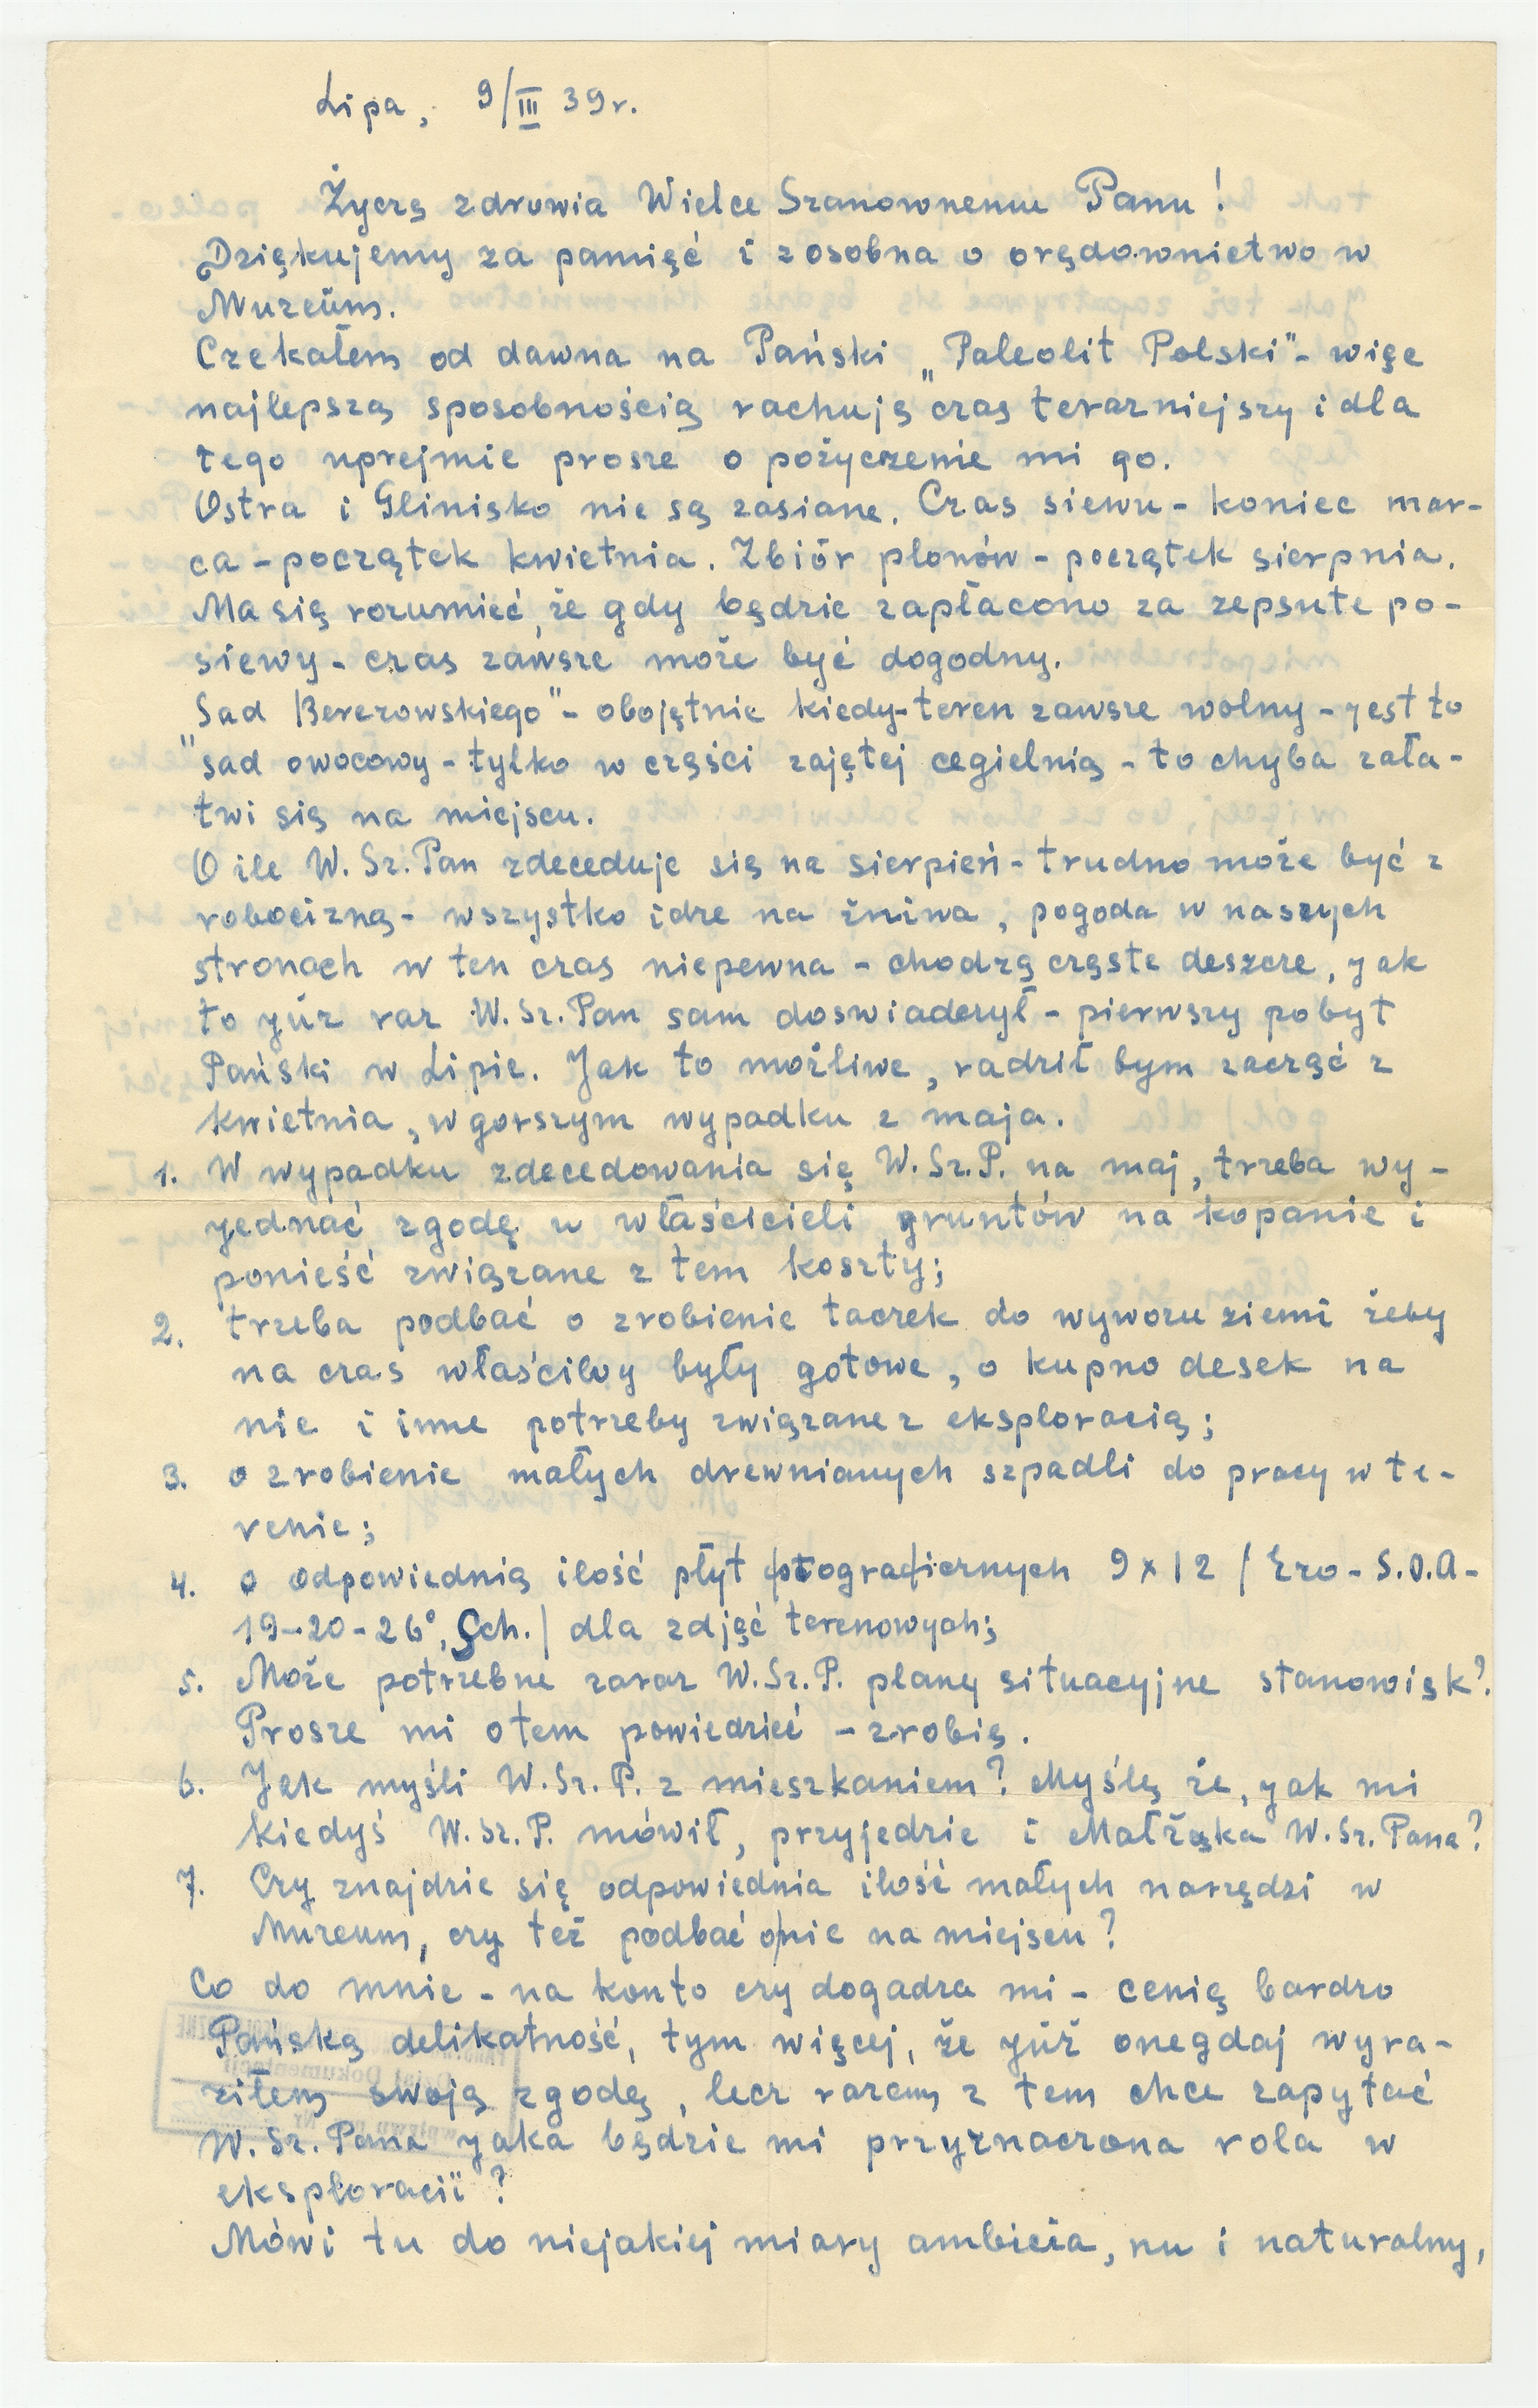 Lipa, 9/III 39r.
Życzą zdrowia Wielce Szanownemu Panu!
Dziękujemy za pamięć i zosobna o orędownictwo w
Muzeum.
Czekałem od dawna na Pański „Paleolit Polski" - więc
najlepszą sposobnością rachuję czas terazniejszy i dla
tego uprejmie prosze o pożyczenie mi go.
Ostra i Glinisko nie są zasiane. Czas siewu - koniec mar-
ca - początek kwietnia. Zbiór plonów - początek sierpnia.
Ma się rozumieć, że gdy będzie zapłacono za zepsute po-
siewy - czas zawsze może być dogodny.
„Sad Berezowskiego" - obojętnie kiedy - teren zawsze wolny - jest to
sad owocowy - tylko w części zajętej cegielnią - to chyba zała-
twi się na miejscu.
O ile W. Sz. Pan zdeceduje się na sierpień - trudno może być z
robocizną - wszystko idze na żniwa, pogoda w naszych
stronach w ten czas niepewna - chodzą częste deszcze, jak
to już raz W. Sz. Pan sam doswiadczył - pierwszy pobyt
Pański w Lipie. Jak to możliwe, radził bym zacząć z
kwietnia, w gorszym wypadku z maja.
1. W wypadku zdecedowania się W. Sz. P. na maj, trzeba wy-
jednać zgodę u właścicieli gruntów na kopanie i
ponieść związane z tem koszty;
2. trzeba podbać o zrobienie taczek do wywozu ziemi żeby
na czas właściwy były gotowe, o kupno desek na
nie i inne potrzeby związane z eksploracią;
3. o zrobienie małych drewnianych szpadli do pracy w te-
renie;
4. o odpowiednią ilość płyt fotograficznych 9x12 / Ero - S.O.A -
19-20-26°, Sch./ dla zdjęć terenowych;
5. Może potrzebne zaraz W. Sz. P. plany situacyjne stanowisk?
Prosze mi o tem powiedzieć - zrobię.
6. Jak myśli W. Sz. P. z mieszkaniem? Myślę że, jak mi
kiedyś W. Sz. P. mówił, przyjedzie i Małżąka W. Sz. Pana?
7. Czy znajdzie się odpowiednia ilość małych narzędzi w
Muzeum, czy też podbać o nie na miejscu?
Co do mnie - na konto czy dogadza mi - cenię bardzo
Pańską delikatność, tym więcej, że już onegdaj wyra-
ziłem swoją zgodę, lecz razem z tem chce zapytać
W. Sz. Pana jaka będzie mi przyznaczona rola w
eksploracii?
Mówi tu do niejakiej miary ambicia, nu i naturalny,